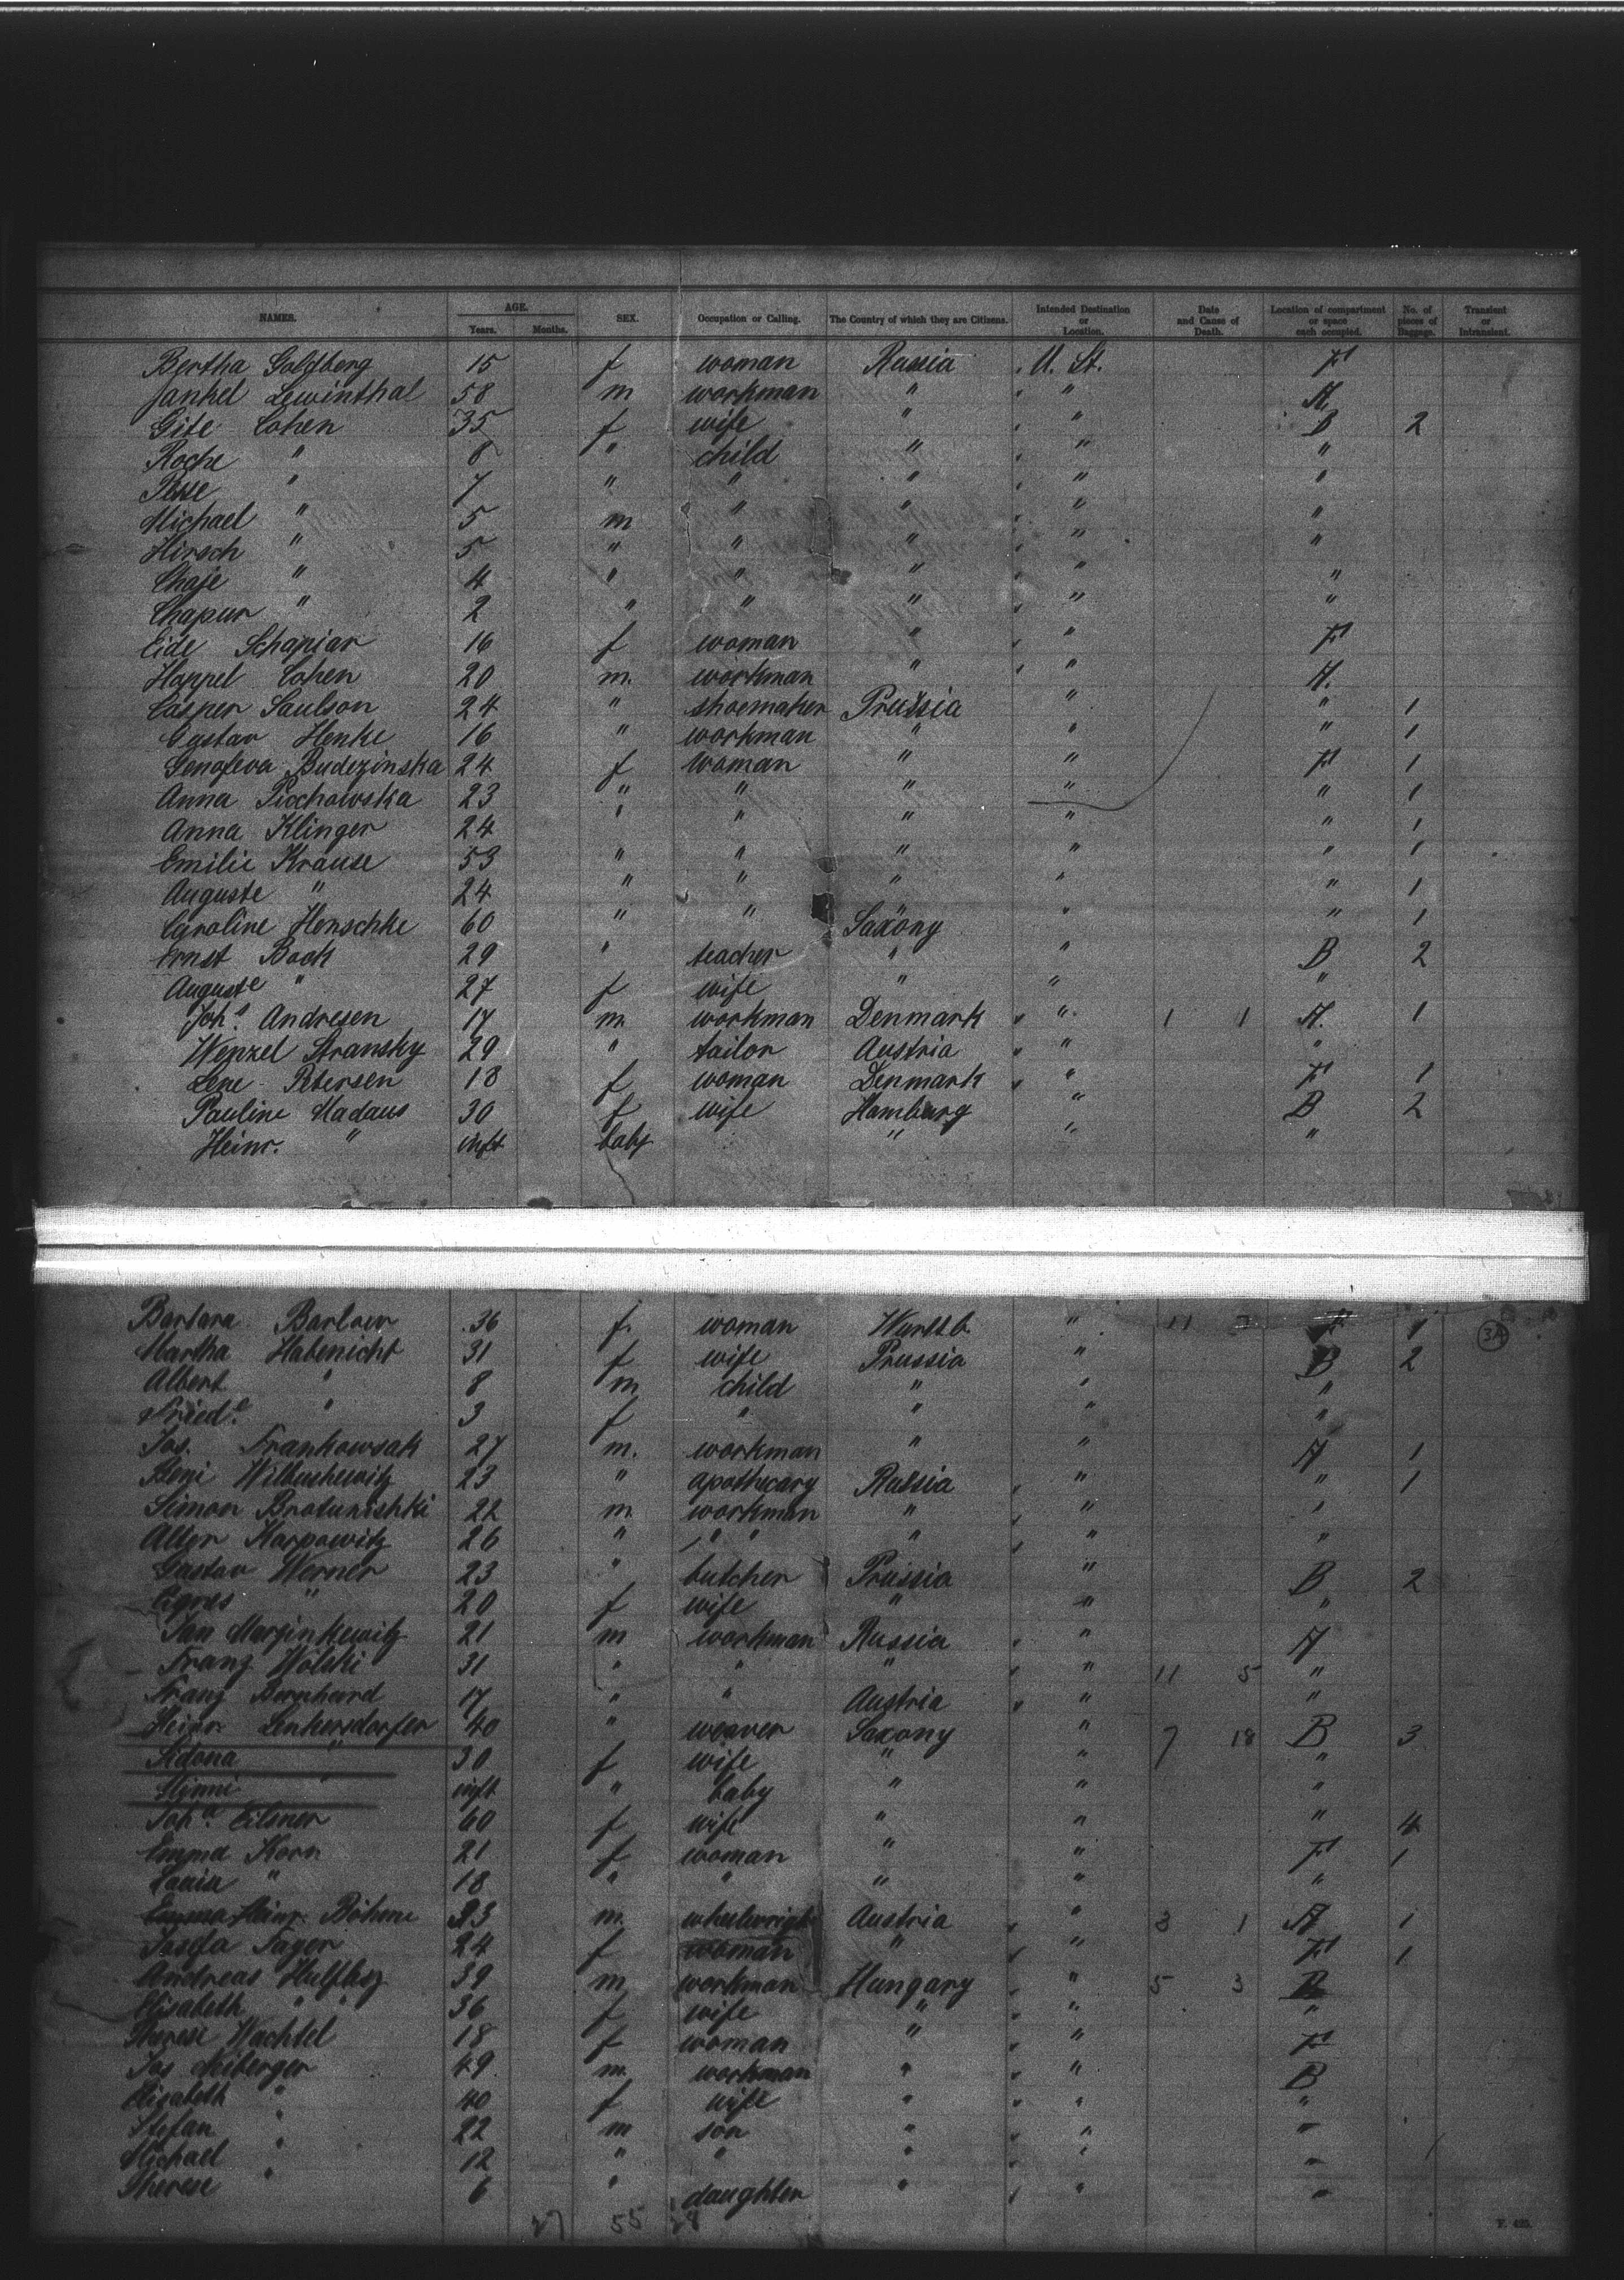 NAMES. AGE. Years. Months. SEX. Occupation or Calling. The Country of which they are Citizens. Intended Destination or Location. Date and Cause of Death. Location of compartment or space each occupied. No. of pieces of Baggage. Transient or Intransient.
Bertha Goldberg 15 f woman Russia U. St. F
Jankel Lewinthal 58 m workman " " A.
Gite Cohen 35 f wife " " B 2
Roche " 8 " child " " "
Pesse " 7 " " " " "
Michael " 5 m " " " "
Hirsch " 5 " " " " "
Chaje " 4 " " " " "
Chapur " 2 " " " " "
Eide Schapiar 16 f woman " " F
Happel Cohen 20 m. workman " " A.
Casper Saulson 24 " shoemaker Prussia " " 1
Gustav Henke 16 " workman " " " 1
Genofeva Budezinska 24 f woman " " F 1
Anna Piechowska 23 " " " " " 1
Anna Klinger 24 " " " " " 1
Emilie Krause 53 " " " " " 1
Auguste " 24 " " " " " 1
Caroline Henschke 60 " " Saxony " " 1
Ernst Bock 29 " teacher " " B 2
Auguste " 27 f wife " " "
Joh.s Andresen 17 m workman Denmark " 1 1 A. 1
Wenzel Stransky 29 " tailor Austria " "
Lene Petersen 18 f woman Denmark " F 1
Pauline Madaus 30 f wife Hamburg " B 2
Heinr. " inft baby " " "
Barbara 36 f. woman Wurttb. " 11 1
34
Martha Habenicht 31 f wife Prussia " B 2
Albert " 8 m child " " "
Fried.e " 3 f " " " "
Jos. Frankowsak 27 m. workman " " A 1
23 " apothecary Russia " " 1
Simon Bratunishki 22 m workman " " "
Alter Karpowitz 26 " " " " " "
Gustav Werner 23 " butcher Prussia " B 2
Agnes " 20 f wife " " "
Jan Marzinkewitz 21 m workman Russia " A
Franz Wolski 31 " " " " 11 5 "
Franz Bernhard 17 " " Austria " "
Heinr Lenkersdorfer 40 " weaver Saxony " 7 18 B 3
Sidona " 30 f wife " " "
Minni " inft " baby " " "
Joh.a Eilsner 60 f wife " " " 4
Emma Korn 21 f woman " " F 1
Louise " 18 " " " " "
Emma Heinr. Böhme 23 m. wheelwright Austria " 3 1 A 1
Josefa Jager 24 f woman " " F 1
Andreas 39 m workman Hungary " 5 3 B
Elisabeth " 36 f wife " " "
Therese Wachtel 18 f woman " " F
Jos Neiberger 49 m. workman " " B
Elisabeth " 40 f wife " " "
Stefan " 22 m son " " "
Michael " 12 " " " " "
Therese " 6 " daughter " " "
27 55 28